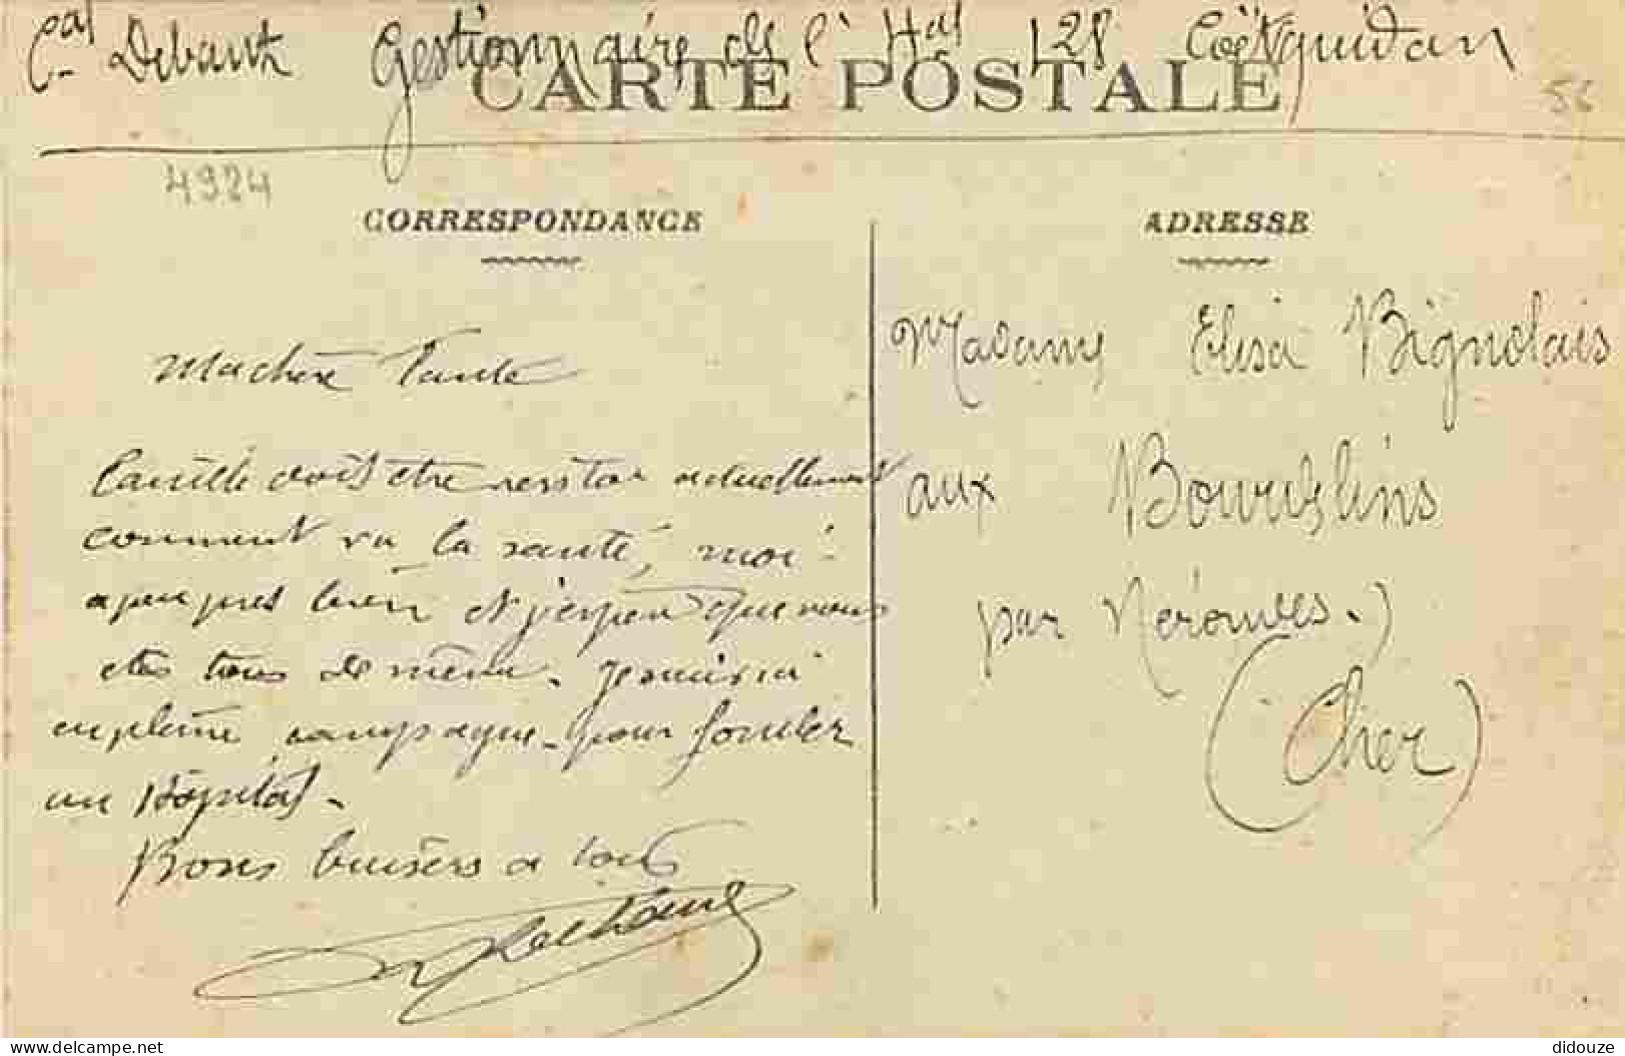 Cal Debautz Gestionnaire de l' Hal 128 Coëtquidan
CARTE POSTALE
56
4924
CORRESPONDANCE
ADRESSE
Ma chère Tante
Camille doit être resta actuellement
comment va la santé, moi
a peu près bien et j'espère que vous
etes tous de même. Je suis ici
en pleine campagne pour fonder
un Hôpital.
Bons baisers a tous
Madame Elisa Bignolais
aux
par Nérondes.
(Cher)
www.delcampe.net
didouze